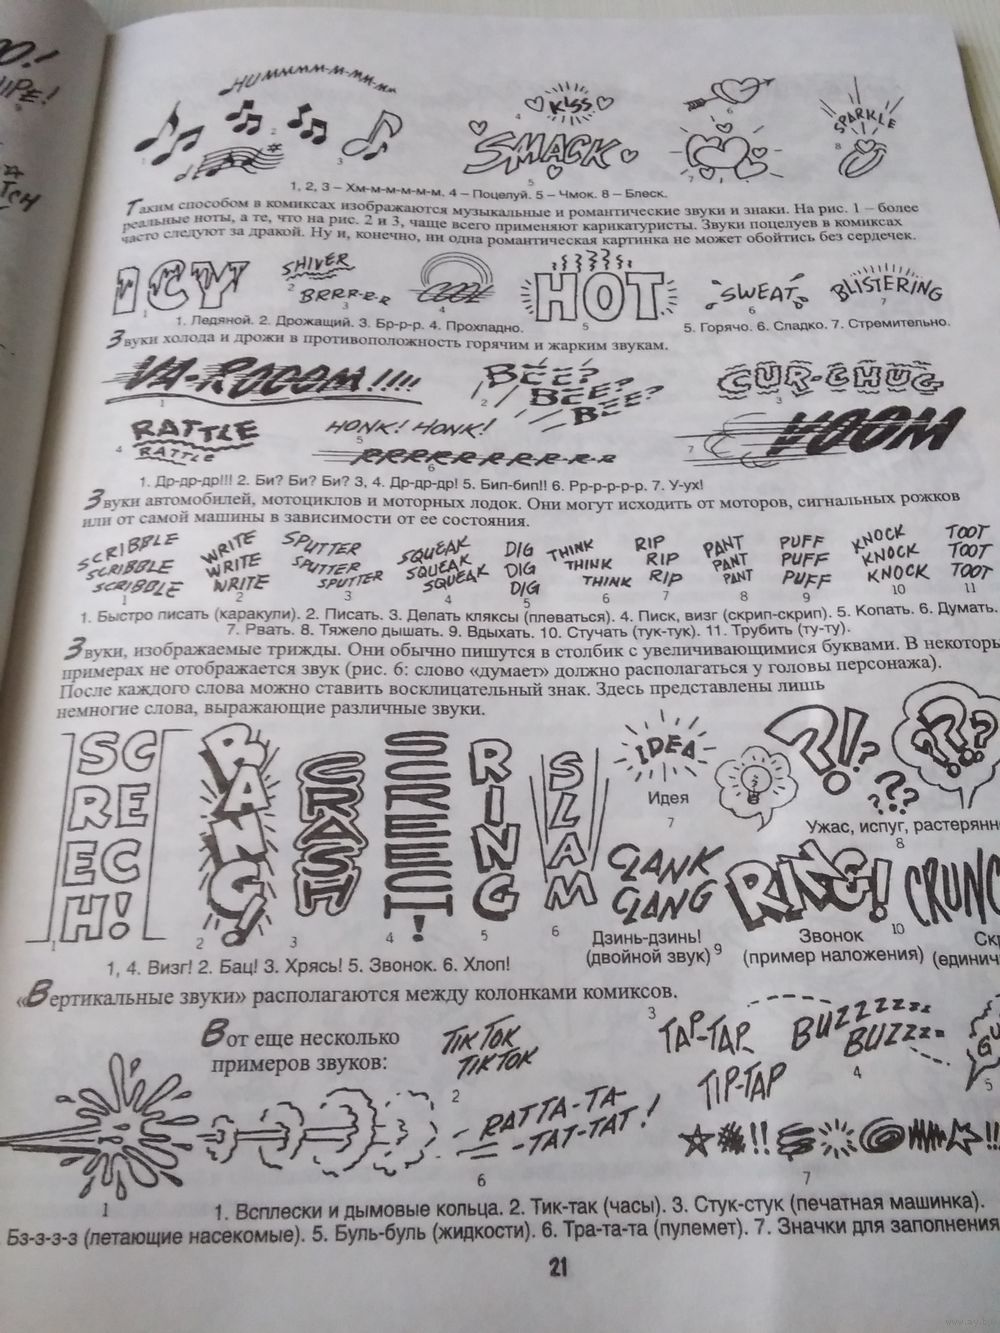 O!
IPE!
TCH
HUMMMM-M-MM-M
KISS
SMACK
SPARKLE
1, 2, 3 – Хм-м-м-м-м-м. 4 – Поцелуй. 5 – Чмок. 8 – Блеск.
Таким способом в комиксах изображаются музыкальные и романтические звуки и знаки. На рис. 1 – более
реальные ноты, а те, что на рис. 2 и 3, чаще всего применяют карикатуристы. Звуки поцелуев в комиксах
часто следуют за дракой. Ну и, конечно, ни одна романтическая картинка не может обойтись без сердечек.
ICY SHIVER BRRR-R-R COOL HOT SWEAT BLISTERING
1. Ледяной. 2. Дрожащий. 3. Бр-р-р. 4. Прохладно. 5. Горячо. 6. Сладко. 7. Стремительно.
Звуки холода и дрожи в противоположность горячим и жарким звукам.
VA-ROOOM!!!! BEE? BEE? BEE? CUR-CHUG
RATTLE RATTLE HONK! HONK! RRRRRRRR-R-R VOOM
1. Др-др-др!!! 2. Би? Би? Би? 3, 4. Др-др-др! 5. Бип-бип!! 6. Рр-р-р-р-р. 7. У-ух!
Звуки автомобилей, мотоциклов и моторных лодок. Они могут исходить от моторов, сигнальных рожков
или от самой машины в зависимости от ее состояния.
SCRIBBLE WRITE SPUTTER SQUEAK DIG THINK RIP PANT PUFF KNOCK TOOT
SCRIBBLE WRITE SPUTTER SQUEAK DIG THINK RIP PANT PUFF KNOCK TOOT
SCRIBBLE WRITE SPUTTER SQUEAK DIG THINK RIP PANT PUFF KNOCK TOOT
1 2 3 4 5 6 7 8 9 10 11
1. Быстро писать (каракули). 2. Писать. 3. Делать кляксы (плеваться). 4. Писк, визг (скрип-скрип). 5. Копать. 6. Думать.
7. Рвать. 8. Тяжело дышать. 9. Вдыхать. 10. Стучать (тук-тук). 11. Трубить (ту-ту).
Звуки, изображаемые трижды. Они обычно пишутся в столбик с увеличивающимися буквами. В некоторы
примерах не отображается звук (рис. 6: слово «думает» должно располагаться у головы персонажа).
После каждого слова можно ставить восклицательный знак. Здесь представлены лишь
немногие слова, выражающие различные звуки.
SCREECH! BANG! CRASH SCREECH! RING SLAM
IDEA
?!? ??? ???
Идея
7
Ужас, испуг, растерянн
8
CLANK CLANG RING! CRUNC
1 2 3 4 5 6
Дзинь-дзинь!
(двойной звук) 9
Звонок 10
(пример наложения)
Ск
(единич
1, 4. Визг! 2. Бац! 3. Хрясь! 5. Звонок. 6. Хлоп!
«Вертикальные звуки» располагаются между колонками комиксов.
Вот еще несколько
примеров звуков:
TIK TOK
TIK TOK
2
3
TAP-TAP
TIP-TAP
BUZZZZZZZ
BUZZZZZ
4
5
RATTA-TA-
-TAT-TAT!
6
!! !!
7
1
1. Всплески и дымовые кольца. 2. Тик-так (часы). 3. Стук-стук (печатная машинка).
Бз-з-з-з (летающие насекомые). 5. Буль-буль (жидкости). 6. Тра-та-та (пулемет). 7. Значки для заполнения
21
www.ay.by